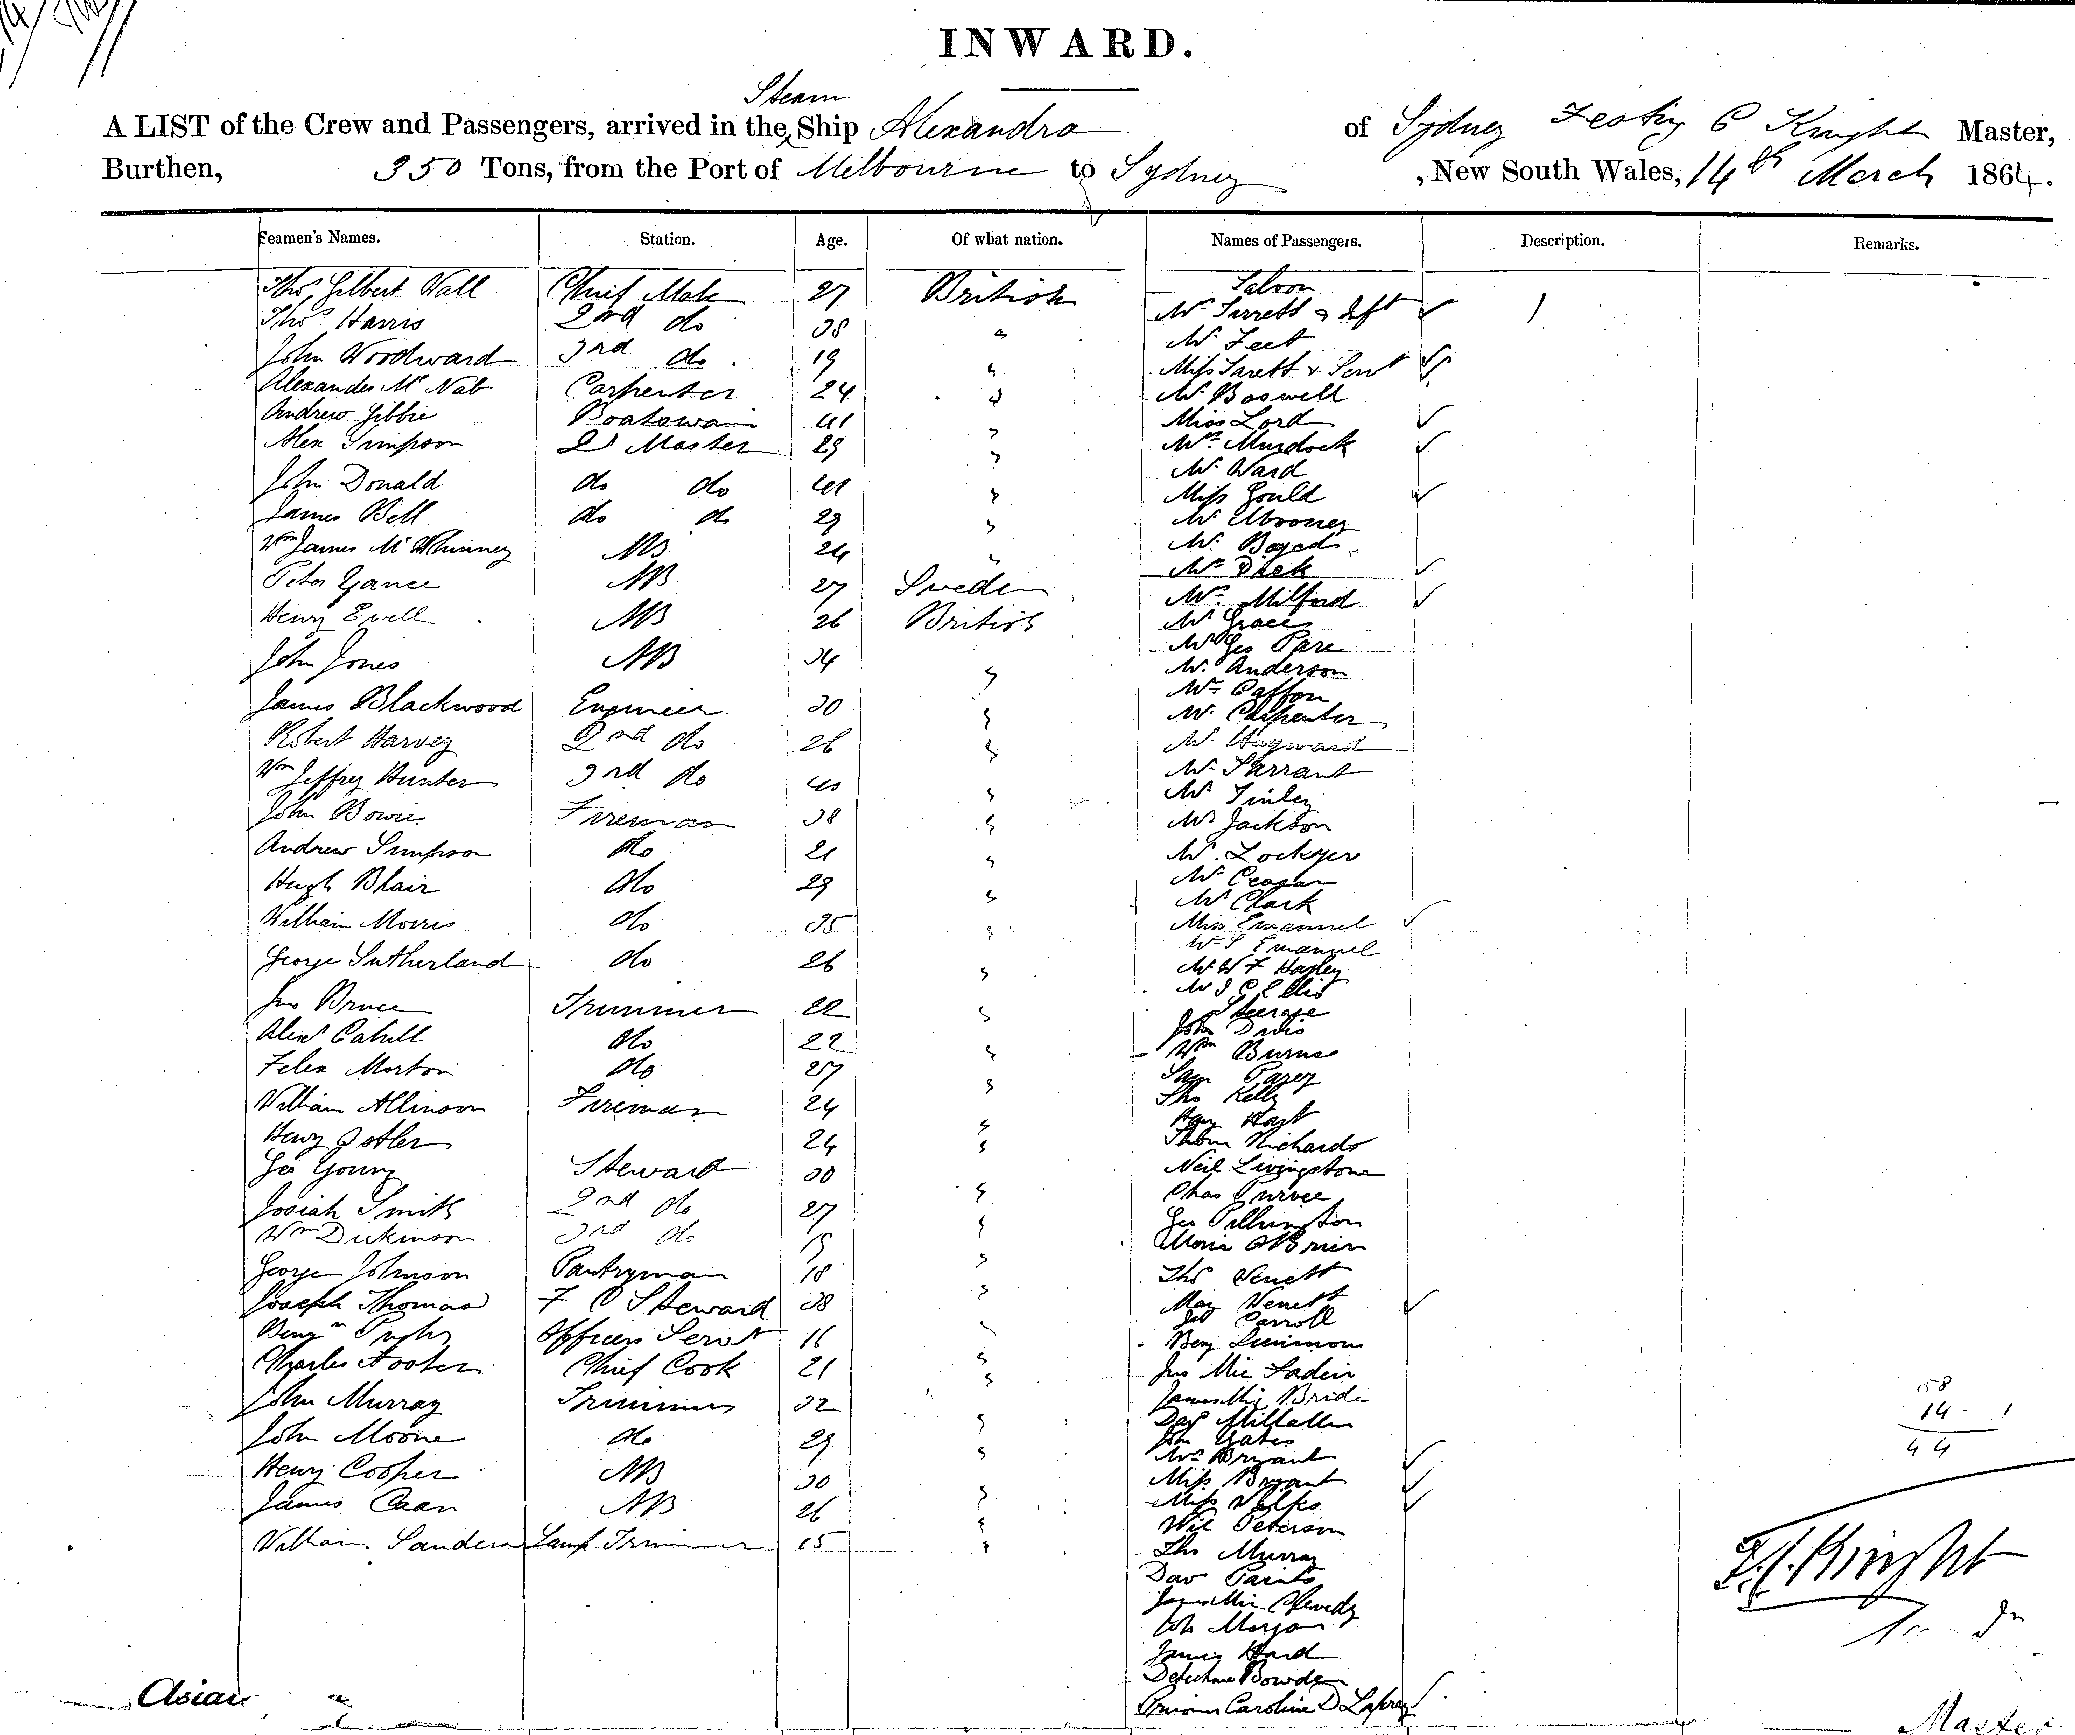 INWARD.
Steam
A LIST of the Crew and Passengers, arrived in the Ship Alexandra of Sydney C Knight Master,
Burthen, 350 Tons, from the Port of Melbourne to Sydney , New South Wales, 14th March 1864.
Seamen's Names. Station. Age. Of what nation. Names of Passengers. Description. Remarks.
Thos Gilbert Wall Chief Mate 27 British Saloon
Thos Harris 2nd do 38 " Mr Tirrett & Inft
John Woodward 3rd do 19 " Mr Feet
Alexander Mc Nab Carpenter 24 " Miss Tarett & Servt
Andrew Gibbie Boatswain 41 " Mr Boswell
Alex Simpson Q Master 29 " Miss Lord
John Donald do do 41 " Mrs Murdock
James Bell do do 29 " Mr Ward
Wm James McWhinney AB 24 " Miss Gould
Peter AB 27 Sweden Mr Mooney
Henry Evell AB 26 British Mr
John Jones AB 34 " Mrs Dick
James Blackwood Engineer 30 " Mrs Milford
Robert Harvey 2nd do 26 " Mr Grace
Wm Jeffrey Hunter 3rd do 40 " Mr Geo
John Bowie Fireman 38 " Mr Anderson
Andrew Simpson do 21 " Mr
Hugh Blair do 29 " Mr Carpenter
William Morris do 35 " Mr Hayward
George Sutherland do 26 " Mr Tarrant
Jno Bruce Trimmer 22 " Mr Tinley
Alexr Cahill do 22 " Mr Jackson
Felix Morton do 27 " Mr Lockyer
William Allinson Fireman 24 " Mr Reagan
Henry 24 " Mr Clark
Geo Young Steward 30 Miss Emanuel
Josiah Smith 2nd do 27 " Mr S Emanuel
Wm Dickinson 3rd do 19 " Mr W F Hanley
George Johnson Pantryman 18 " Mr J C Ellis
Joseph Thomas F C Steward 38 " Steerage
Benjn Officers Servt 16 " John Davis
Charles Foster Chief Cook 21 " Wm Burns
John Murray Trimmer 32 " Sam
John Moore do 29 " Thos Kelly
Henry Cooper AB 30 " Hoyt
James AB 26 " Richards
William Sanders Lamp Trimmer 15 " Neil Livingstone
Chas Purvee
Geo Pilkington
Maria O'Brien
Thos Venett
May Venett
Jas Carroll
Benj
Jno
James Mc Bride
John Yates
Mrs Bryant
Miss Bryant
Miss
Wil Peterson
Thos Murray
Dav
John Morgan
James Hard
Detective Bowden
Caroline D
58
14 - 1
44
F. C. Knight
Asian
Master